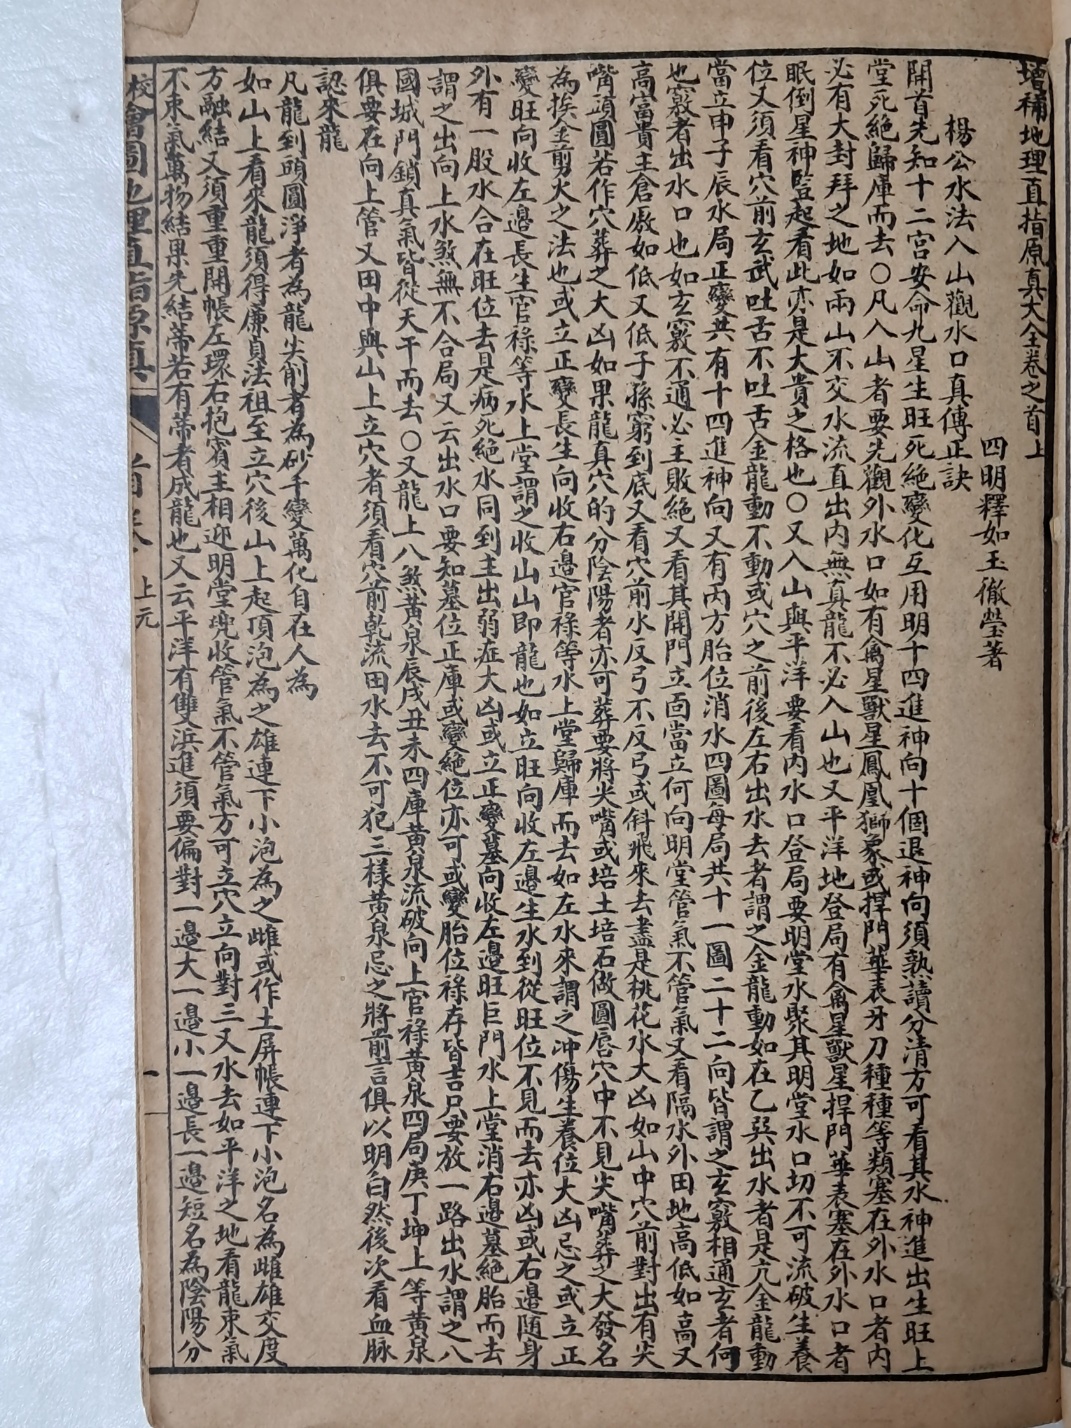 增補地理直指原真大全卷之首上
四明釋如玉徹瑩著
楊公水法入山觀水口真傳正訣
開首先知十二宮安命九星生旺死絕變化互用明十四進神向十個退神向須熟讀分清方可看其水神進出生旺上
堂死絕歸庫而去○凡入山者要先觀外水口如有禽星獸星鳳凰獅象或捍門華表牙刀種種等類塞在外水口者內
必有大封拜之地如兩山不交水流直出內無真龍不必入山也又平洋地登局有禽星獸星捍門華表塞在外水口者
眠倒星神豎起看此亦是大貴之格也○又入山與平洋要看內水口登局要明堂水聚其明堂水口切不可流破生養
位又須看穴前玄武吐舌不吐舌金龍動不動或穴之前後左右出水去者謂之金龍動如在乙巽出水者是亢金龍動
當立申子辰水局正變共有十四進神向又有丙方胎位消水四圖每局共十一圖二十二向皆謂之玄竅相通玄者何
也竅者出水口也如玄竅不通必主敗絕又看其開門立面當立何向明堂管氣不管氣又看隔水外田地高低如高又
高富貴主倉廒如低又低子孫窮到底又看穴前水反弓不反弓或斜飛來去盡是桃花水大凶如山中穴前對出有尖
嘴頭圓若作穴葬之大凶如果龍真穴的分陰陽者亦可葬要將尖嘴或培土培石做圓唇穴中不見尖嘴葬之大發名
為挨金剪火之法也或立正變長生向收右邊官祿等水上堂歸庫而去如左水來謂之沖傷生養位大凶忌之或立正
變旺向收左邊長生官祿等水上堂謂之收山山即龍也如立旺向收左邊生水到從旺位不見而去亦凶或右邊隨身
外有一股水合在旺位去是病死絕水同到主出弱症大凶或立正變墓向收左邊旺巨門水上堂消右邊墓絕胎而去
謂之出向上水煞無不合局又云出水口要知墓位正庫或變絕位亦可或變胎位祿存皆吉只要放一路出水謂之八
國城門鎖真氣皆從天干而去○又龍上八煞黃泉辰戌丑未四庫黃泉流破向上官祿黃泉四局庚丁坤上等黃泉
俱要在向上管又田中與山上立穴者須看穴前乾流田水去不可犯三樣黃泉忌之將前言俱以明白然後次看血脉
認來龍
凡龍到頭圓淨者為龍尖削者為砂千變萬化自在人為
如山上看來龍須得廉貞法祖至立穴後山上起頂泡為之雄連下小泡為之雌或作土屏帳連下小泡名為雌雄交度
方融結又須重重開帳左環右抱賓主相迎明堂兜收管氣不管氣方可立穴立向對三叉水去如平洋之地看龍束氣
不束氣萬物結果先結蒂若有蒂者成龍也又云平洋有雙浜進須要偏對一邊大一邊小一邊長一邊短名為陰陽分
校會圖地理直指原真 上元 一